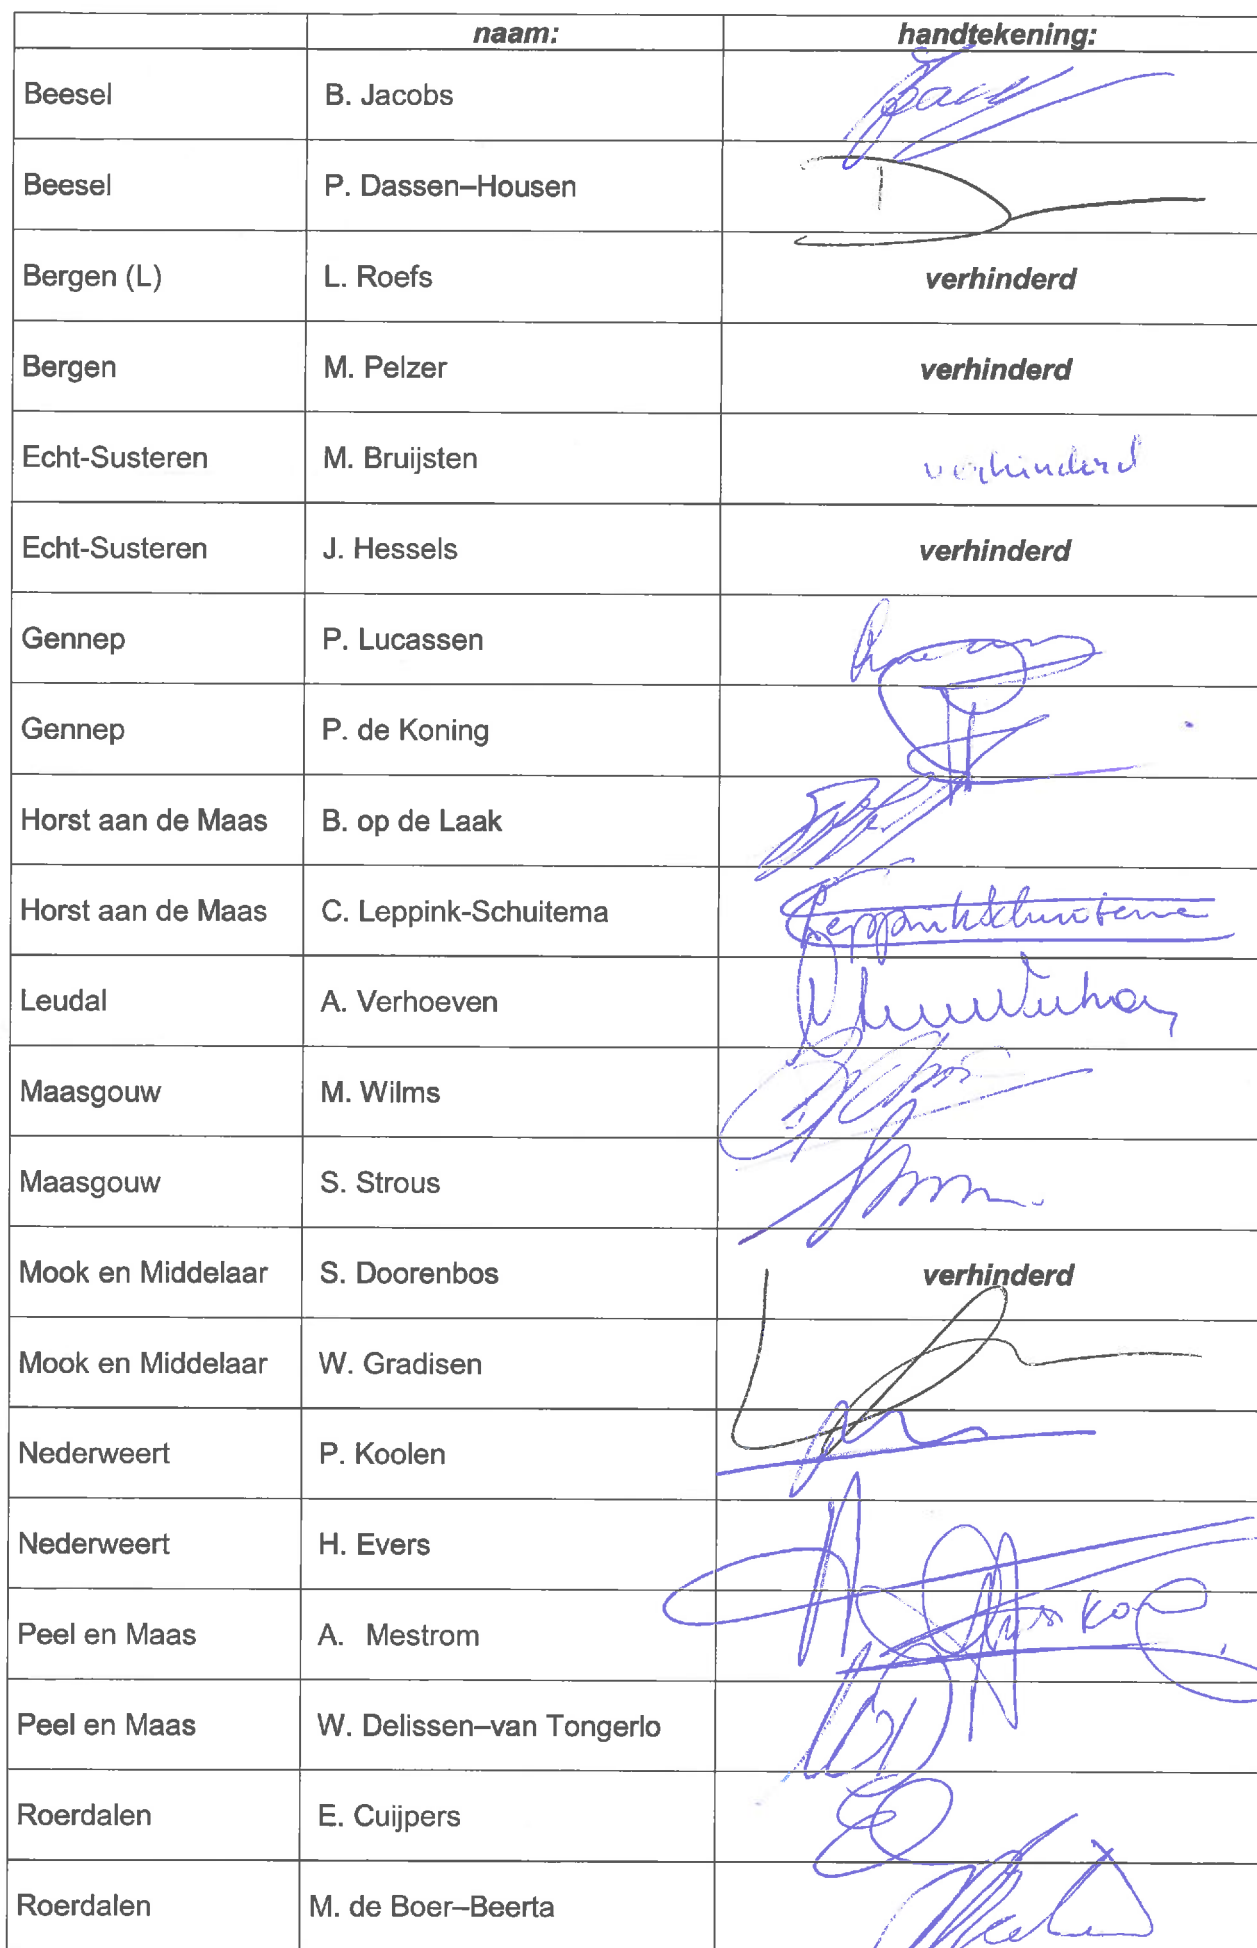 naam: handtekening:
Beesel B. Jacobs
Beesel P. Dassen–Housen
Bergen (L) L. Roefs verhinderd
Bergen M. Pelzer verhinderd
Echt-Susteren M. Bruijsten verhinderd
Echt-Susteren J. Hessels verhinderd
Gennep P. Lucassen
Gennep P. de Koning
Horst aan de Maas B. op de Laak
Horst aan de Maas C. Leppink-Schuitema LeppinkSchuitema
Leudal A. Verhoeven
Maasgouw M. Wilms
Maasgouw S. Strous
Mook en Middelaar S. Doorenbos verhinderd
Mook en Middelaar W. Gradisen
Nederweert P. Koolen
Nederweert H. Evers
Peel en Maas A. Mestrom
Peel en Maas W. Delissen–van Tongerlo
Roerdalen E. Cuijpers
Roerdalen M. de Boer–Beerta